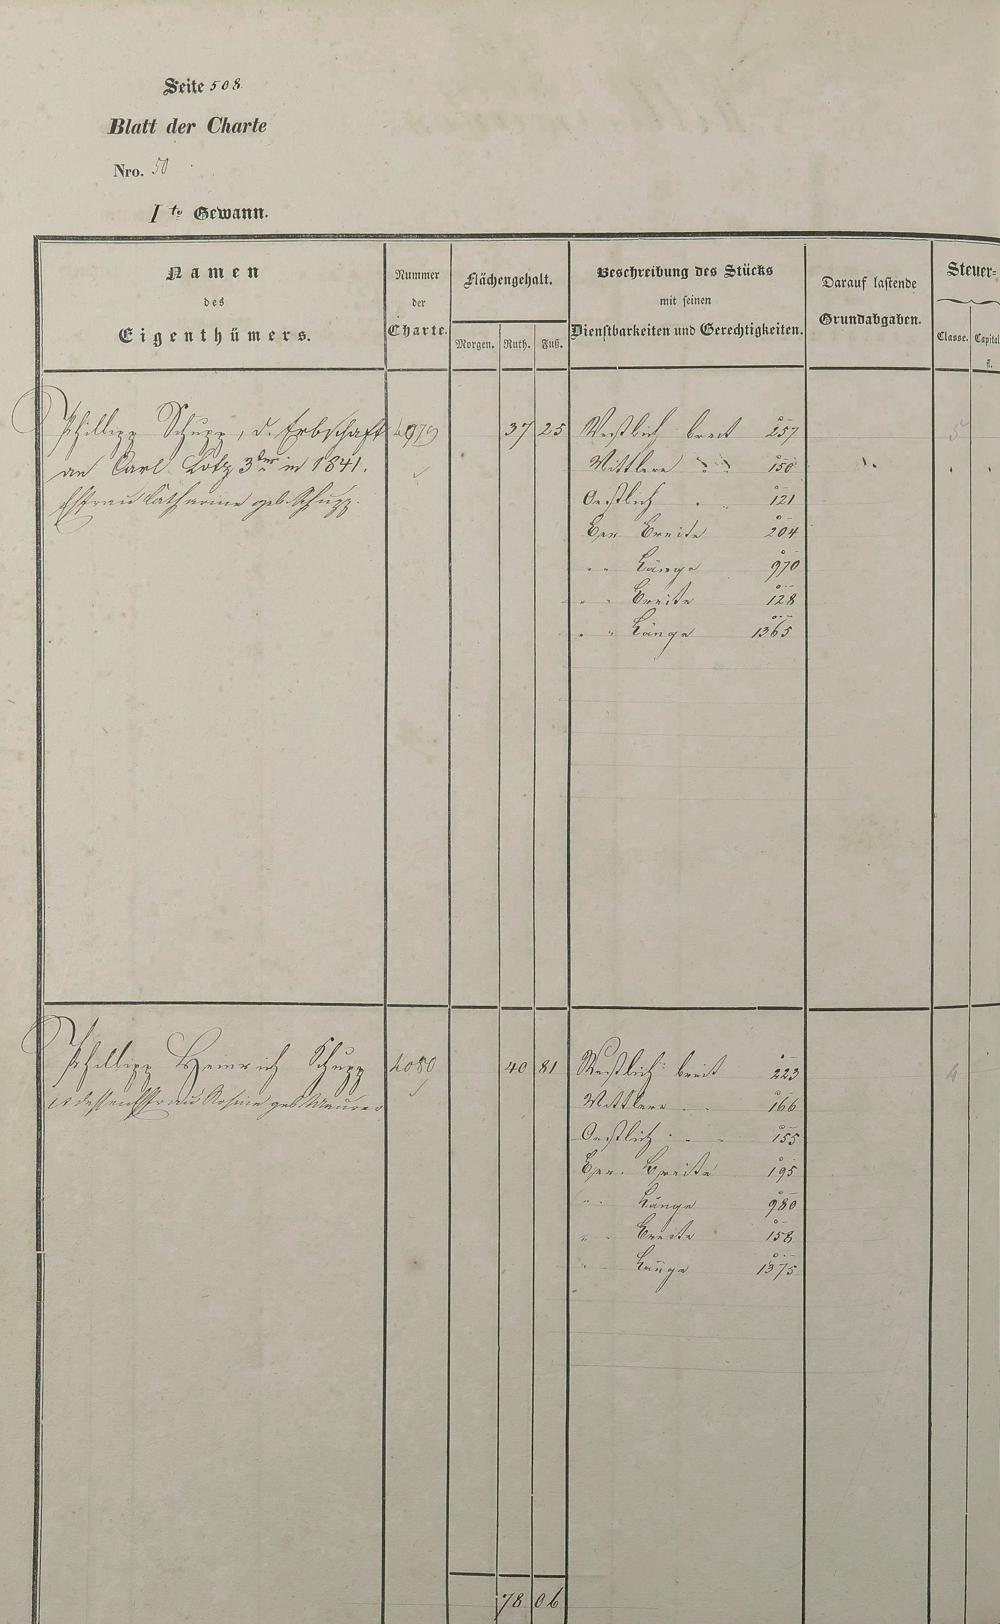 Seite 508
Blatt der Charte
Nro. 50
I te Gewann.
Namen des Eigenthümers.
Nummer der Charte.
Flächengehalt.
Morgen. Ruth. Fuß.
Beschreibung des Stücks mit seinen Dienstbarkeiten und Gerechtigkeiten.
Darauf lastende Grundabgaben.
Steuer-
Classe. Capital fl.
Phillipp Schupp, d. Erbschaft 4079 37 25 Westlich breit 257 5
an Carl Lotz 3ter in 1841. Mittlere " " 150
Ehfrau Catharine geb. Schupp. Oestlich " " 121
Ger. Breite 204
" " Länge 970
" " Breite 128
" " Länge 1365
Phillipp Heinrich Schupp 4080 40 81 Westlich breit 223 4
et dessen Ehfrau Rosine geb Maurer Mittlere " " 166
Oestlich " " 155
Ger. Breite 195
" " Länge 980
" " Breite 158
" Länge 1375
78 06